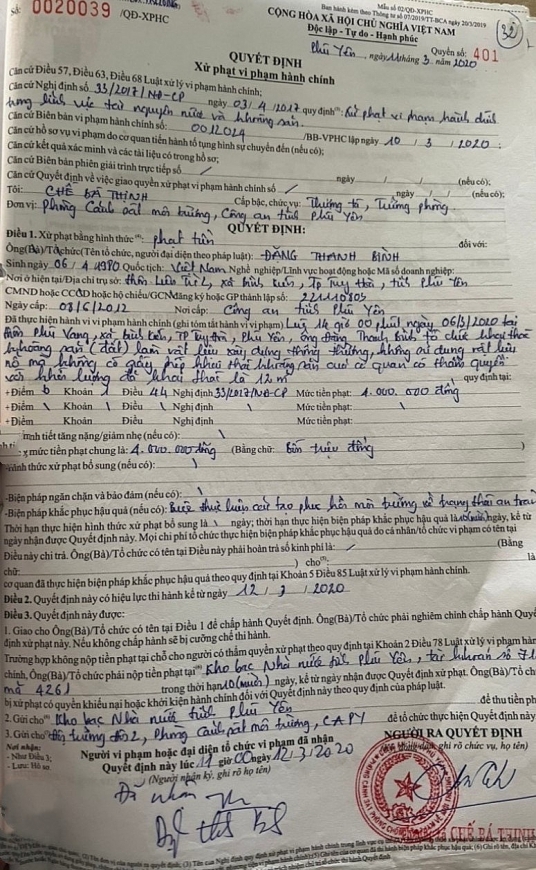 Mẫu số 02/QĐ-XPHC
Ban hành kèm theo Thông tư số 07/2019/TT-BCA ngày 20/3/2019
Số: 0020039 /QĐ-XPHC
CỘNG HÒA XÃ HỘI CHỦ NGHĨA VIỆT NAM
Độc lập - Tự do - Hạnh phúc
32
Phú Yên, ngày 11 tháng 3 năm 2020
Quyển số: 401
QUYẾT ĐỊNH
Xử phạt vi phạm hành chính
Căn cứ Điều 57, Điều 63, Điều 68 Luật xử lý vi phạm hành chính;
Căn cứ Nghị định số 33/2017/NĐ-CP ngày 03/4/2017 quy định: Xử phạt vi phạm hành chính
trong lĩnh vực tài nguyên nước và khoáng sản.
Căn cứ Biên bản vi phạm hành chính số: 0012024 /BB-VPHC lập ngày 10 / 3 / 2020;
Căn cứ hồ sơ vụ vi phạm do cơ quan tiến hành tố tụng hình sự chuyển đến (nếu có);
Căn cứ kết quả xác minh và các tài liệu có trong hồ sơ;
Căn cứ Biên bản phiên giải trình trực tiếp số / ngày / / (nếu có);
Căn cứ Quyết định về việc giao quyền xử phạt vi phạm hành chính số / ngày / / (nếu có);
Tôi: CHẾ BÁ THỊNH Cấp bậc, chức vụ: Thượng tá, Trưởng phòng
Đơn vị: Phòng Cảnh sát môi trường, Công an tỉnh Phú Yên
QUYẾT ĐỊNH:
Điều 1. Xử phạt bằng hình thức: phạt tiền đối với:
Ông(Bà)/Tổ chức(Tên tổ chức, người đại diện theo pháp luật): ĐẶNG THANH BÌNH
Sinh ngày 06 / 4 / 1980 Quốc tịch: Việt Nam Nghề nghiệp/Lĩnh vực hoạt động hoặc Mã số doanh nghiệp:
Nơi ở hiện tại/Địa chỉ trụ sở: thôn Liên Trì 2, xã Bình Kiến, TP Tuy Hòa, tỉnh Phú Yên
CMND hoặc CCCD hoặc hộ chiếu/GCN đăng ký hoặc GP thành lập số:
Ngày cấp: 03/6/2012 Nơi cấp: Công an tỉnh Phú Yên
Đã thực hiện hành vi vi phạm hành chính (ghi tóm tắt hành vi vi phạm) Lúc 14 giờ 00 phút, ngày 06/3/2020 tại
thôn Phú Vang, xã Bình Kiến, TP Tuy Hòa, ông Đặng Thanh Bình tổ chức khai thác
khoáng sản (đất) làm vật liệu xây dựng thông thường, không sử dụng vật liệu
nổ mà không có giấy phép khai thác khoáng sản của cơ quan có thẩm quyền
với khối lượng đã khai thác là 12 m quy định tại:
+Điểm b Khoản 1 Điều 44 Nghị định 33/2017/NĐ-CP Mức tiền phạt: 4.000.000 đồng
+Điểm \ Khoản \ Điều \ Nghị định \ Mức tiền phạt: \
+Điểm Khoản Điều Nghị định Mức tiền phạt:
tình tiết tăng nặng/giảm nhẹ (nếu có): \
mức tiền phạt chung là: 4.000.000 đồng (Bằng chữ: Bốn triệu đồng )
hình thức xử phạt bổ sung (nếu có): \
-Biện pháp ngăn chặn và bảo đảm (nếu có): \
-Biện pháp khắc phục hậu quả (nếu có): Buộc thực hiện cải tạo phục hồi môi trường về trạng thái an toàn
Thời hạn thực hiện hình thức xử phạt bổ sung là \ ngày; thời hạn thực hiện biện pháp khắc phục hậu quả là 10(mười) ngày, kể từ
ngày nhận được Quyết định này. Mọi chi phí tổ chức thực hiện biện pháp khắc phục hậu quả do cá nhân/tổ chức vi phạm có tên tại
Điều này chi trả. Ông(Bà)/Tổ chức có tên tại Điều này phải hoàn trả số kinh phí là: / (Bằng
chữ: ) cho: là
cơ quan đã thực hiện biện pháp khắc phục hậu quả theo quy định tại Khoản 5 Điều 85 Luật xử lý vi phạm hành chính.
Điều 2. Quyết định này có hiệu lực thi hành kể từ ngày 12 / 3 / 2020
Điều 3. Quyết định này được:
1. Giao cho Ông(Bà)/Tổ chức có tên tại Điều 1 để chấp hành Quyết định. Ông(Bà)/Tổ chức phải nghiêm chỉnh chấp hành Quyết
định xử phạt này. Nếu không chấp hành sẽ bị cưỡng chế thi hành.
Trường hợp không nộp tiền phạt tại chỗ cho người có thẩm quyền xử phạt theo quy định tại Khoản 2 Điều 78 Luật xử lý vi phạm hành
chính, Ông(Bà)/Tổ chức phải nộp tiền phạt tại Kho bạc Nhà nước tỉnh Phú Yên, tài khoản số 71
mã 4261 trong thời hạn 10 (mười) ngày, kể từ ngày nhận được Quyết định xử phạt. Ông(Bà)/Tổ chức
bị xử phạt có quyền khiếu nại hoặc khởi kiện hành chính đối với Quyết định này theo quy định của pháp luật.
2. Gửi cho Kho bạc Nhà nước tỉnh Phú Yên để thu tiền phạt
3. Gửi cho Đội tướng đội 2, Phòng Cảnh sát môi trường, CAPY để tổ chức thực hiện Quyết định này
Nơi nhận:
- Như Điều 3;
- Lưu: Hồ sơ
Người vi phạm hoặc đại diện tổ chức vi phạm đã nhận
Quyết định này lúc 11 giờ 00 ngày 12/3/2020
(Người nhận ký, ghi rõ họ tên)
NGƯỜI RA QUYẾT ĐỊNH
ghi rõ chức vụ, họ tên)
Đã nhận
CHẾ BÁ THỊNH